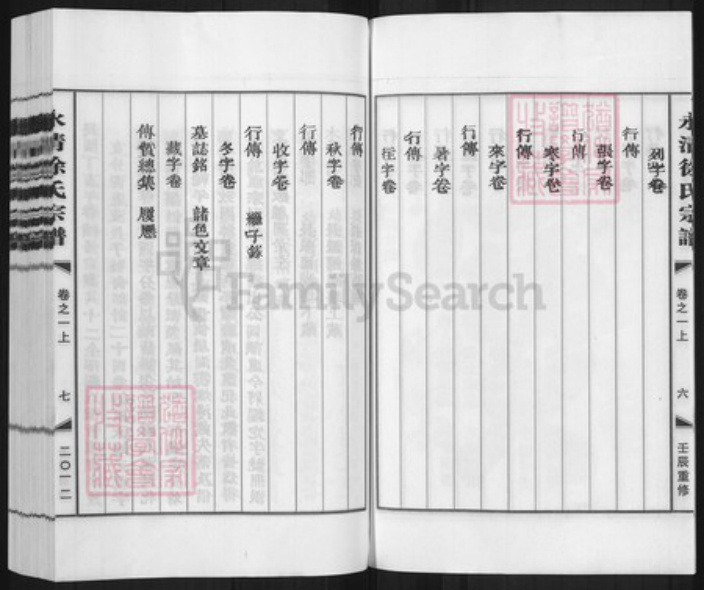 永清徐氏宗譜
卷之一上
六
壬辰重修
列字卷
行傳
張字卷
行傳
寒字卷
行傳
來字卷
行傳
暑字卷
行傳
往字卷
行傳
秋字卷
行傳
收字卷
行傳 繼子錄
冬字卷
墓誌銘 諸色文章
藏字卷
傳贊總集 履歷
永清徐氏宗譜
卷之一上
七
二〇一二
FamilySearch